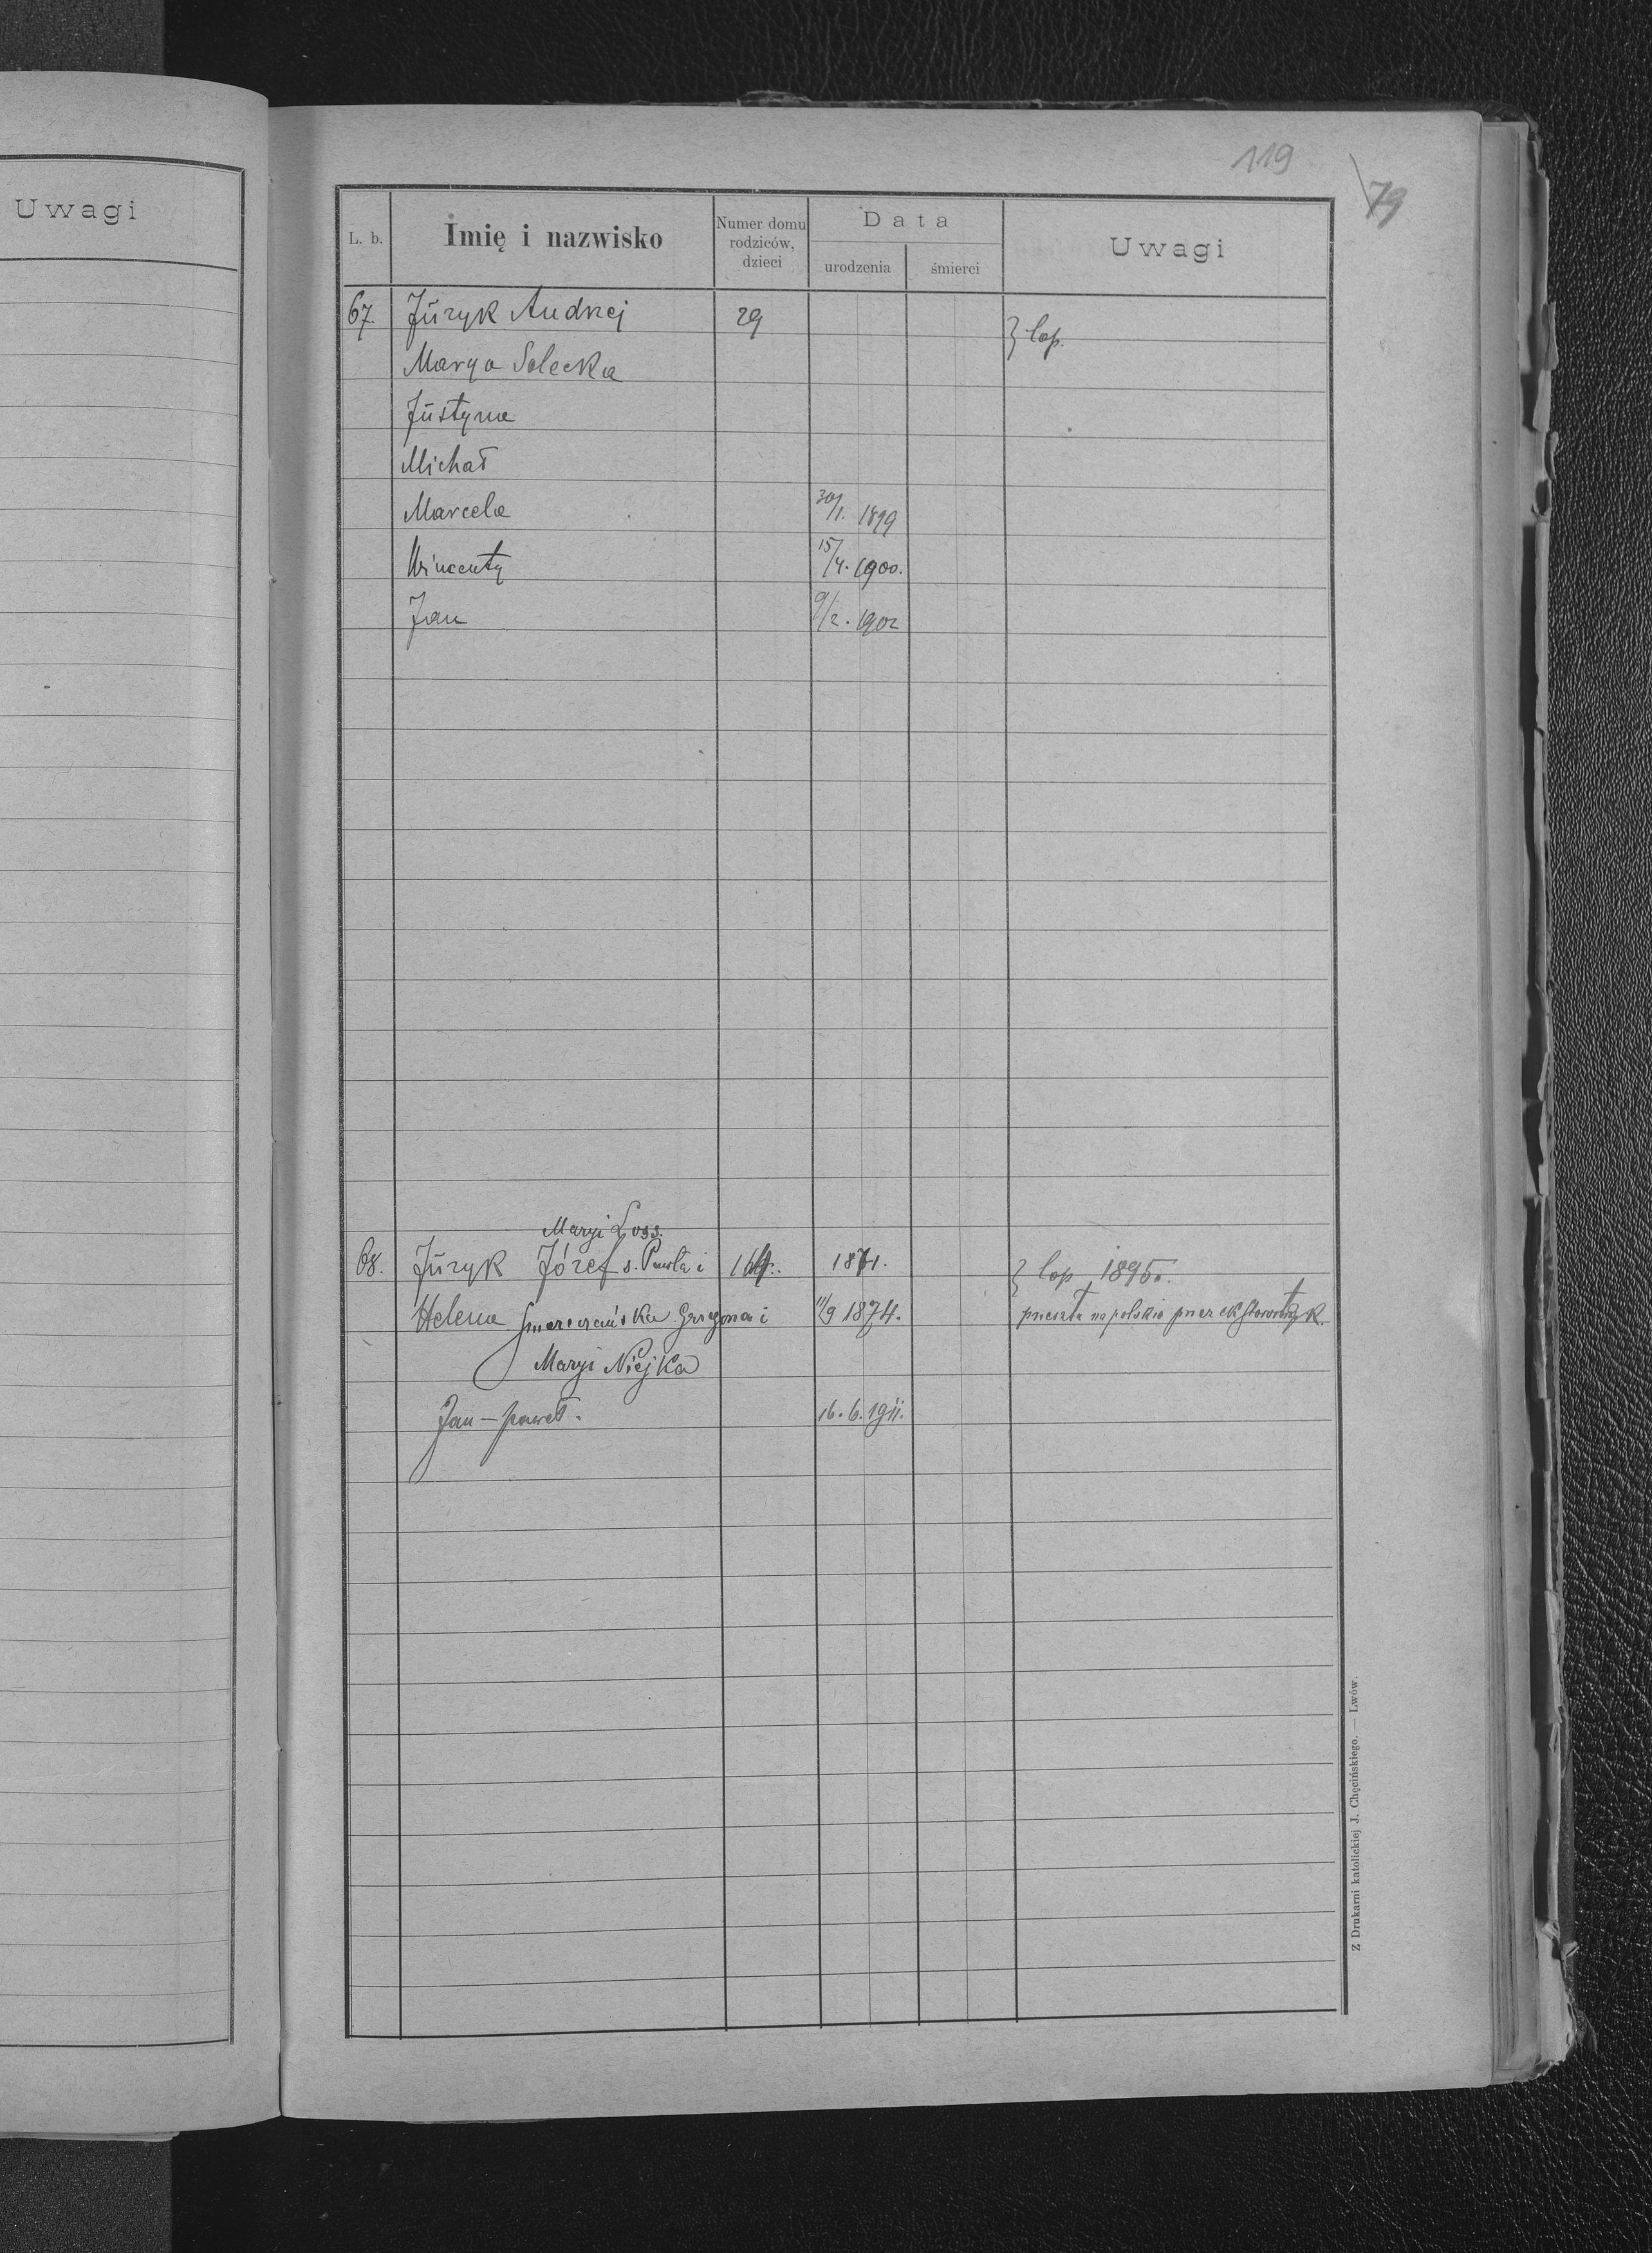 Uwagi
119
79
L. b.
Imię i nazwisko
Numer domu rodziców, dzieci
Data
urodzenia
śmierci
Uwagi
67. Jūzyk Andrzej 29 } łap.
Marya Solecka
Jūstyna
Michał
Marcela 30/1. 1899
Wincenty 15/4. 1900.
Jan 9/2. 1902
Maryi Loss.
68. Jūzyk Józef s. Pawła i 164. 1871. } 1895.
Helena Grzegorza i 11/9 1874. na polskie
Maryi Niejka
Jan – paweł. 16. 6. 1911.
Z Drukarni katolickiej J. Chęcińskiego. — Lwów.